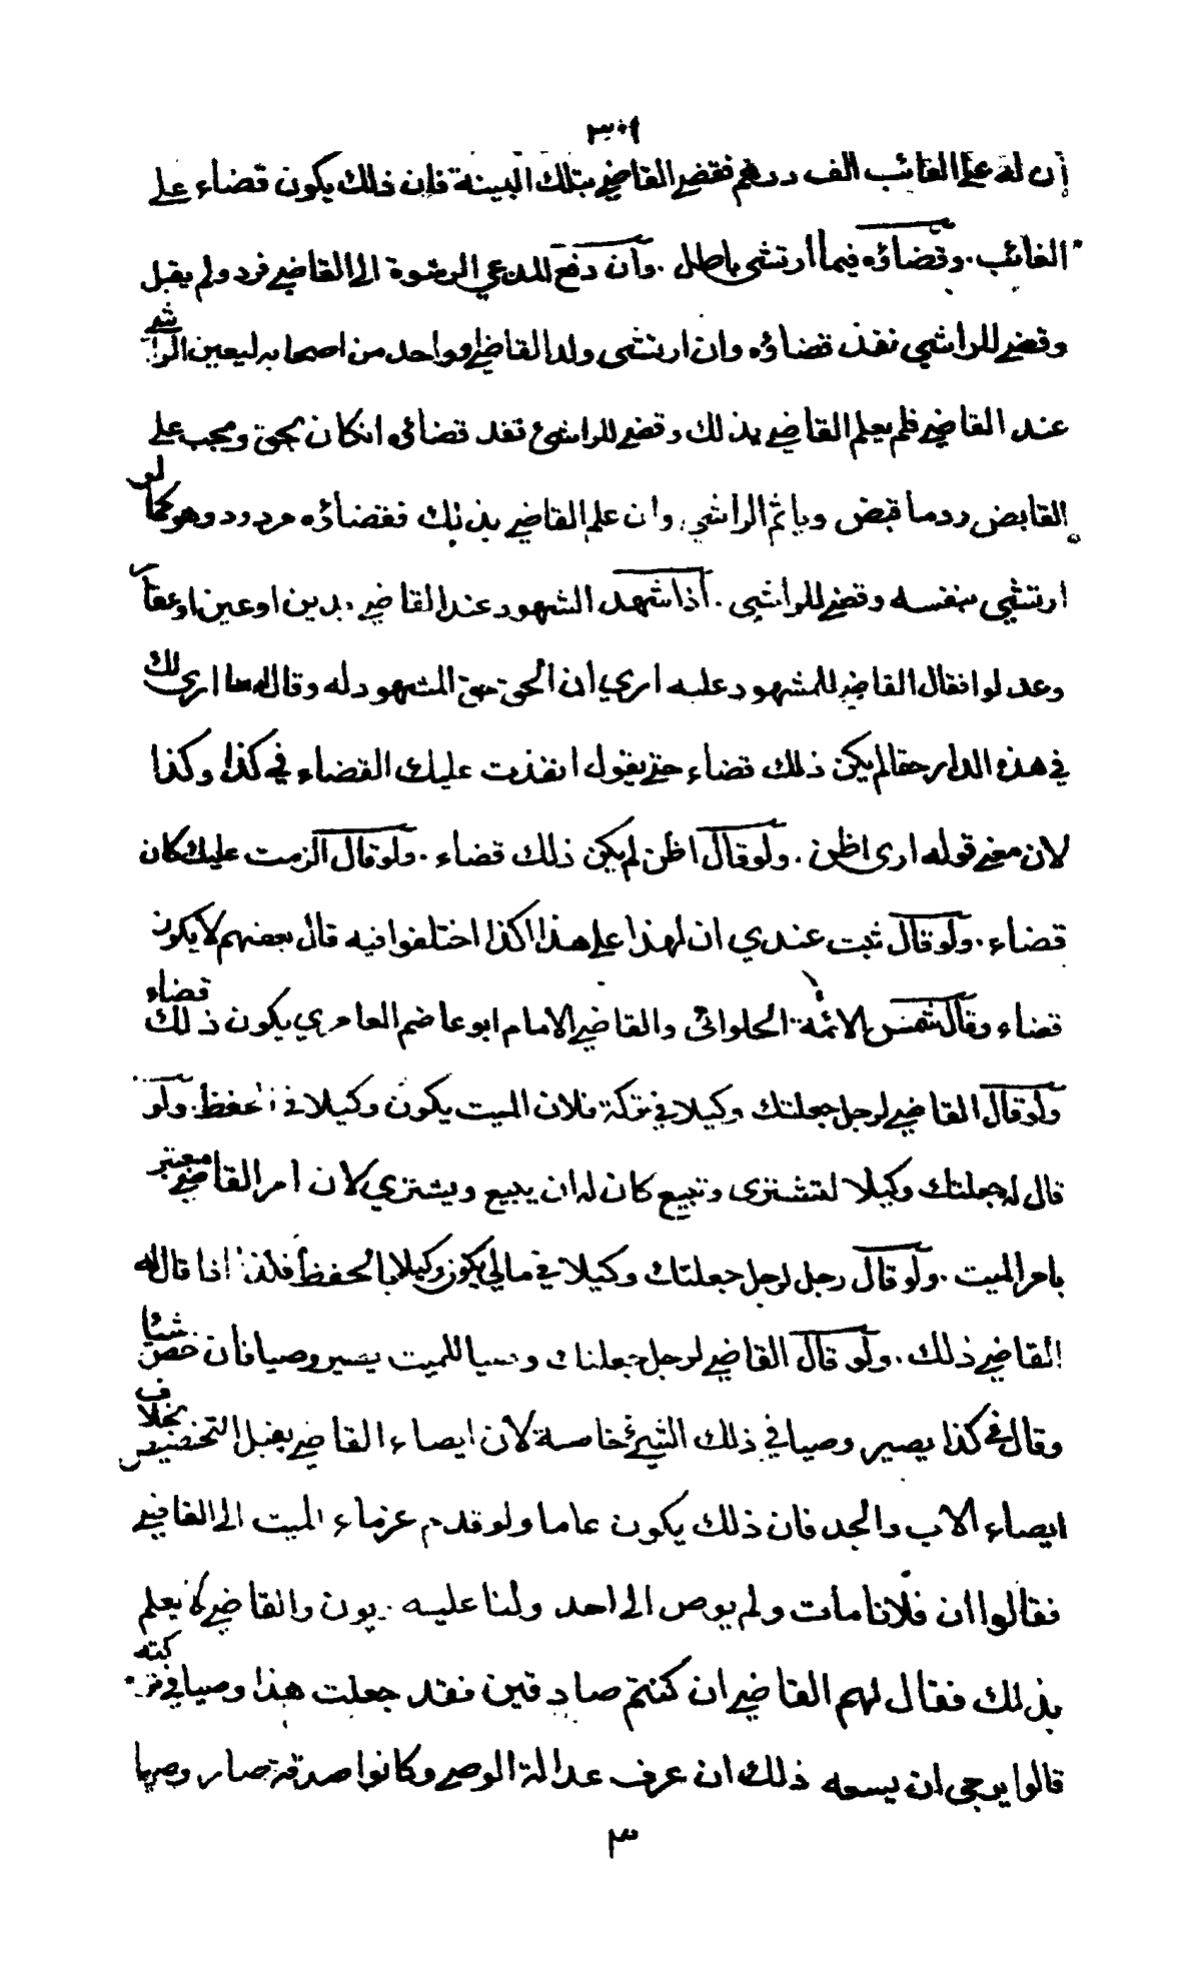 ٣٠٩
ان له على الغائب الف درهم فقضى القاضي بتلك البينة فان ذلك يكون قضاء على
الغائب . وقضاؤه فيما ارتشى باطل . وان دفع المدعي الرشوة الى القاضي فرد ولم يقبل
وقضى للراشي نفذ قضاؤه وان ارتشى ولد القاضي او واحد من اصحابه ليعين الراشي
عند القاضي فلم يعلم القاضي بذلك وقضى للراشئ نفذ قضائه انكان بحق ويجب على
القابض رد ما قبض وياثم الراشي . وان علم القاضي بذلك فقضاؤه مردود وهو كما لو
ارتشي بنفسه وقضى للراشي . اذا شهد الشهود عند القاضي . بدين اوعين اوعقار
وعدلوا فقال القاضي للمشهود عليه اري ان الحق حق المشهود له وقال له ما ارى لك
في هذه الدار حقا لم يكن ذلك قضاء حتى يقول انفذت عليك القضاء في كذا وكذا
لان معنى قوله ارى اظن . ولو قال اظن لم يكن ذلك قضاء . ولو قال الزمت عليك كان
قضاء . ولو قال ثبت عندي ان لهذا على هذا كذا اختلفوا فيه قال بعضهم لا يكون
قضاء وقال شمس الائمة الحلوائى والقاضي الامام ابو عاصم العامري يكون ذلك قضاء
ولو قال القاضي لرجل جعلتك وكيلا في تركة فلان الميت يكون وكيلا في الحفظ . ولو
قال له جعلتك وكيلا لتشترى وتبيع كان له ان يبيع ويشتري لان امر القاضي معتبر
بامر الميت . ولو قال رجل لرجل جعلتك وكيلا في مالي يكون وكيلا بالحفظ فلذا اذا قال له
القاضي ذلك . ولو قال القاضي لرجل جعلتك وصيا للميت يصير وصيا فان خص شيئا
وقال في كذا يصير وصيا في ذلك الشئ خاصة لان ايصاء القاضي يقبل التخصيص بخلاف
ايصاء الاب والجد فان ذلك يكون عاما ولو قدم غرماء الميت الى القاضي
فقالوا ان فلانا مات ولم يوص الى احد ولنا عليه ديون والقاضي لا يعلم
بذلك فقال لهم القاضي ان كنتم صادقين فقد جعلت هذا وصيا في تركته
قالوا يرجى ان يسعه ذلك ان عرف عدالة الوصي وكانوا صدقة صار وصيا
٣